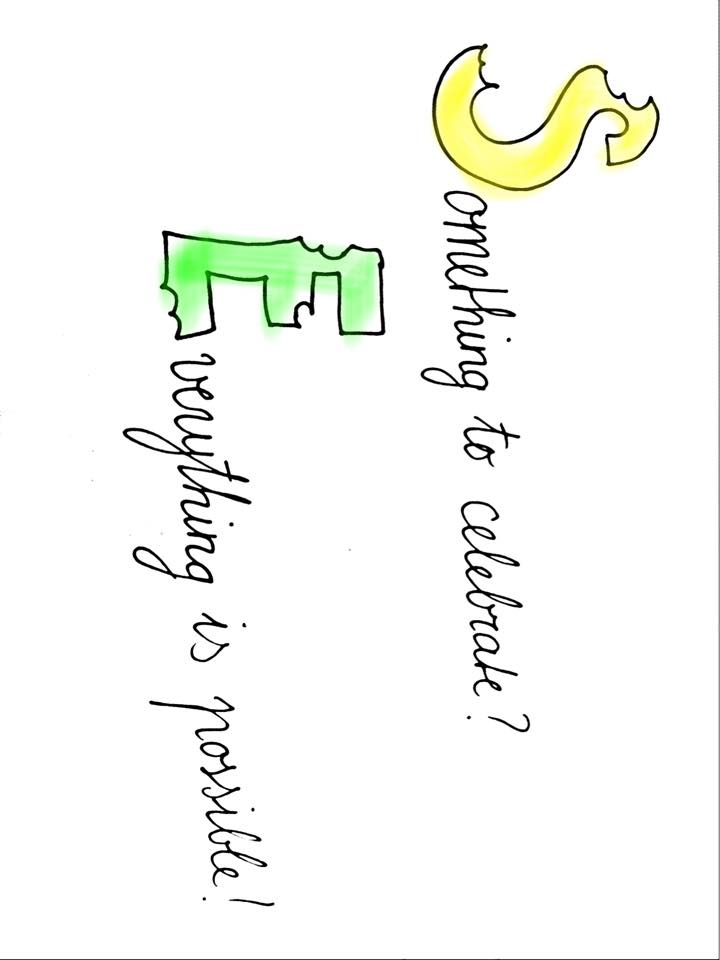 Something to celebrate?
Everything is possible!